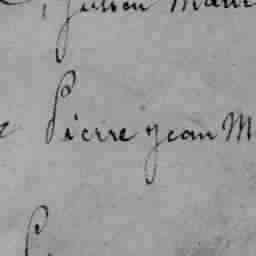 Julien Marie
Pierre Jean M